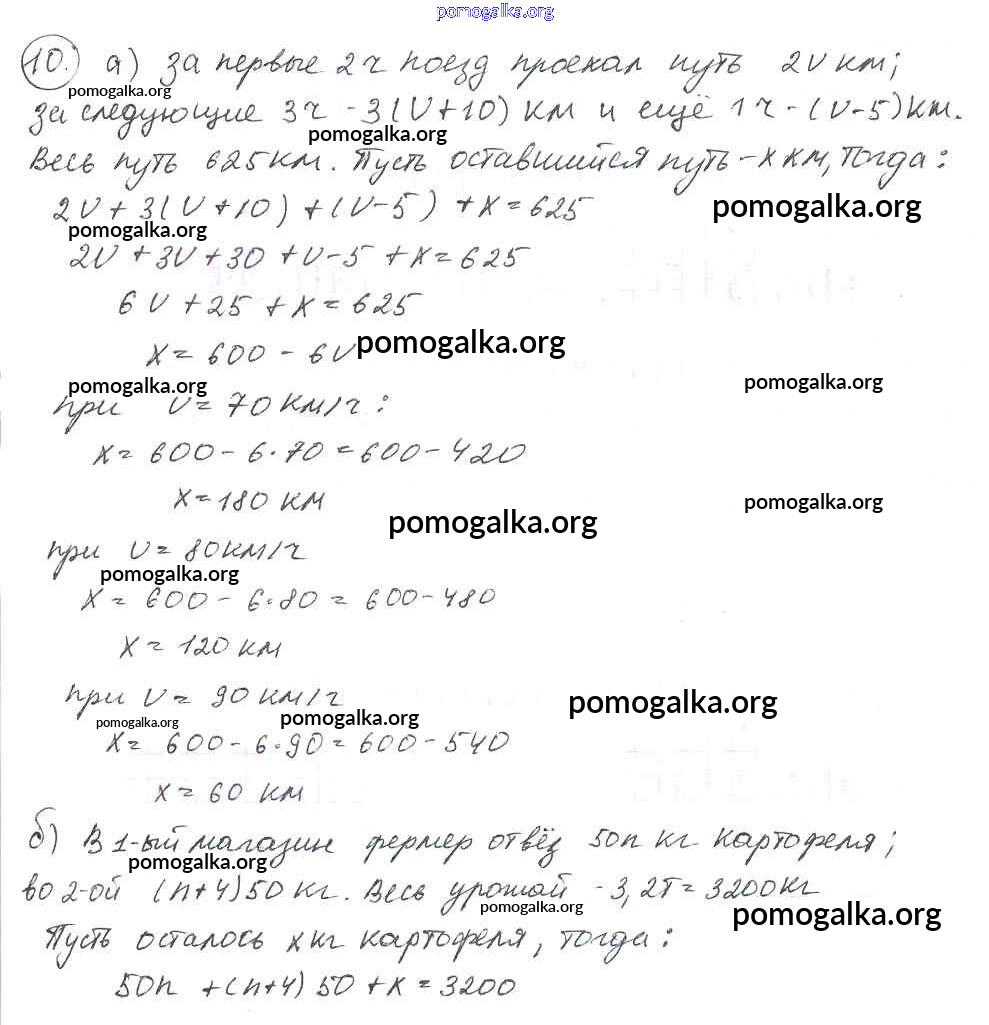 pomogalka.org
10. а) за первые 2 ч поезд проехал путь 2V км;
pomogalka.org
за следующие 3 ч - 3(V+10) км и ещё 1 ч - (V-5) км.
pomogalka.org
Весь путь 625 км. Пусть оставшийся путь - x км, тогда:
2V + 3(V+10) + (V-5) + x = 625
pomogalka.org
pomogalka.org
2V + 3V + 30 + V - 5 + x = 625
6V + 25 + x = 625
x = 600 - 6V
pomogalka.org
pomogalka.org
pomogalka.org
при V = 70 км/ч:
x = 600 - 6·70 = 600 - 420
x = 180 км
pomogalka.org
pomogalka.org
при V = 80 км/ч
pomogalka.org
x = 600 - 6·80 = 600 - 480
x = 120 км
при V = 90 км/ч
pomogalka.org
pomogalka.org
pomogalka.org
x = 600 - 6·90 = 600 - 540
x = 60 км
б) В 1-ый магазин фермер отвёз 50n кг картофеля;
pomogalka.org
во 2-ой (n+4)50 кг. Весь урожай - 3,2т = 3200кг
pomogalka.org
pomogalka.org
Пусть осталось x кг картофеля, тогда:
50n + (n+4) 50 + x = 3200